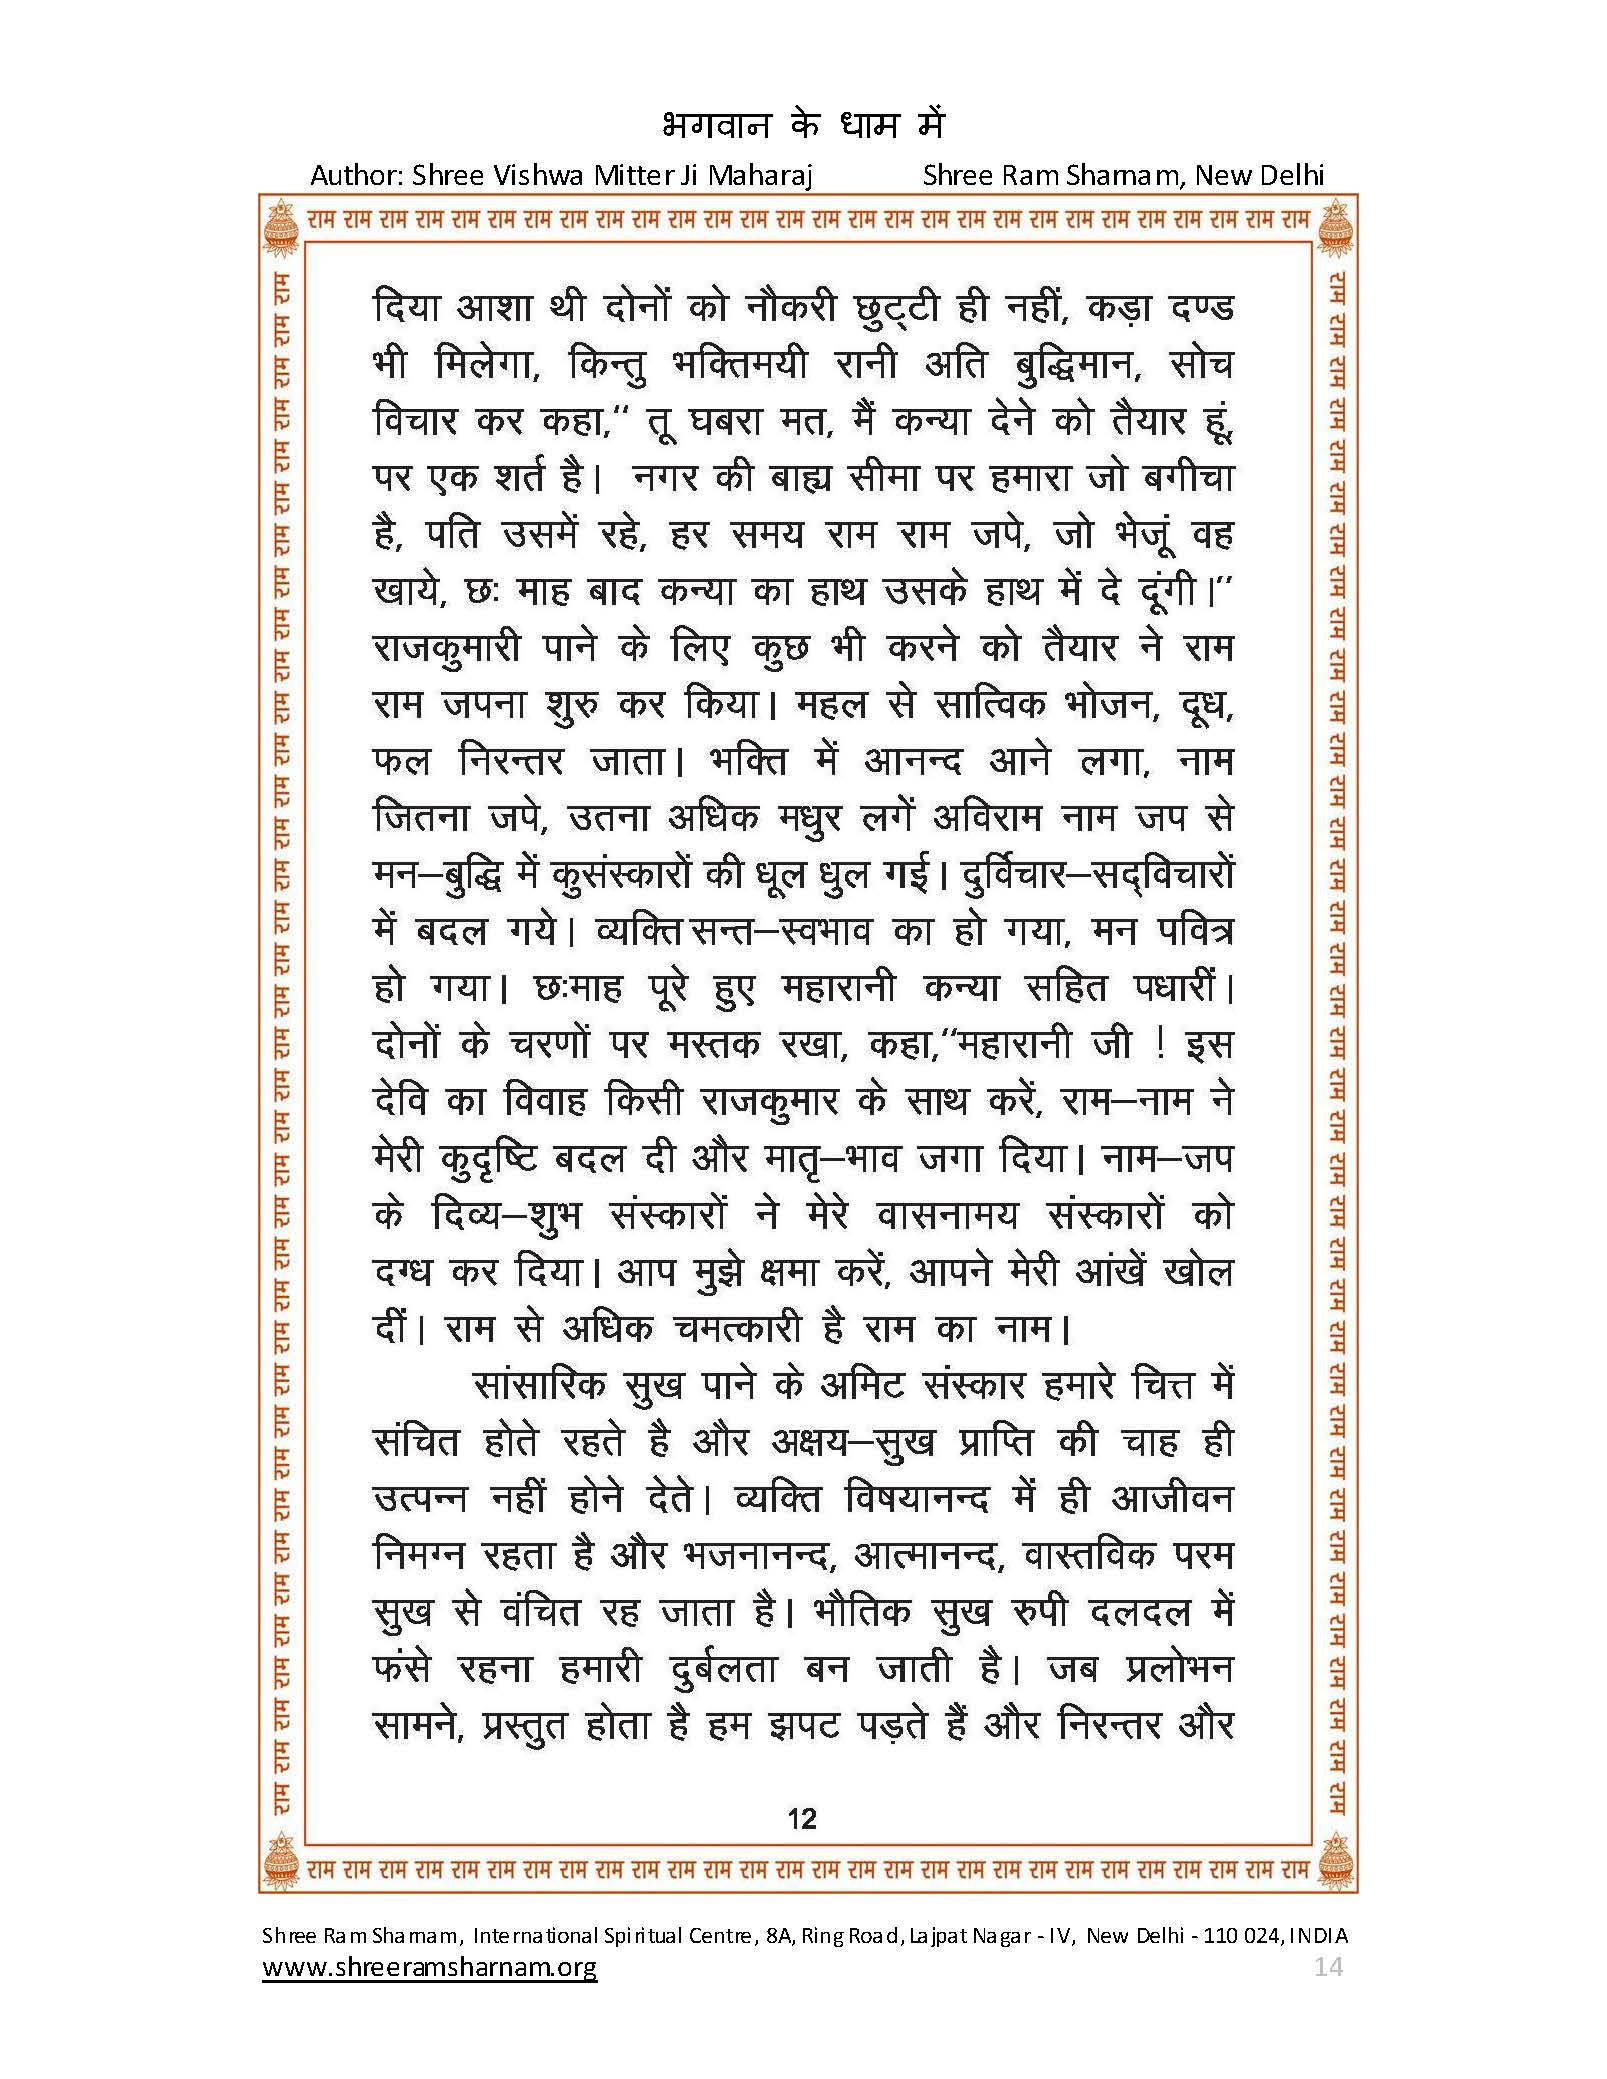 भगवान के धाम में
Author: Shree Vishwa Mitter Ji Maharaj Shree Ram Sharnam, New Delhi
राम राम राम राम राम राम राम राम राम राम राम राम राम राम राम राम राम राम राम राम राम राम राम राम राम राम राम राम
दिया आशा थी दोनों को नौकरी छुट्टी ही नहीं, कड़ा दण्ड
भी मिलेगा, किन्तु भक्तिमयी रानी अति बुद्धिमान, सोच
विचार कर कहा,‘‘ तू घबरा मत, मैं कन्या देने को तैयार हूं,
पर एक शर्त है। नगर की बाह्य सीमा पर हमारा जो बगीचा
है, पति उसमें रहे, हर समय राम राम जपे, जो भेजूं वह
खाये, छः माह बाद कन्या का हाथ उसके हाथ में दे दूंगी।’’
राजकुमारी पाने के लिए कुछ भी करने को तैयार ने राम
राम जपना शुरु कर किया। महल से सात्विक भोजन, दूध,
फल निरन्तर जाता। भक्ति में आनन्द आने लगा, नाम
जितना जपे, उतना अधिक मधुर लगें अविराम नाम जप से
मन–बुद्धि में कुसंस्कारों की धूल धुल गई। दुर्विचार–सद्‌विचारों
में बदल गये। व्यक्ति सन्त–स्वभाव का हो गया, मन पवित्र
हो गया। छःमाह पूरे हुए महारानी कन्या सहित पधारीं।
दोनों के चरणों पर मस्तक रखा, कहा,‘‘महारानी जी ! इस
देवि का विवाह किसी राजकुमार के साथ करें, राम–नाम ने
मेरी कुदृष्टि बदल दी और मातृ–भाव जगा दिया। नाम–जप
के दिव्य–शुभ संस्कारों ने मेरे वासनामय संस्कारों को
दग्ध कर दिया। आप मुझे क्षमा करें, आपने मेरी आंखें खोल
दीं। राम से अधिक चमत्कारी है राम का नाम।
सांसारिक सुख पाने के अमिट संस्कार हमारे चित्त में
संचित होते रहते है और अक्षय–सुख प्राप्ति की चाह ही
उत्पन्न नहीं होने देते। व्यक्ति विषयानन्द में ही आजीवन
निमग्न रहता है और भजनानन्द, आत्मानन्द, वास्तविक परम
सुख से वंचित रह जाता है। भौतिक सुख रुपी दलदल में
फंसे रहना हमारी दुर्बलता बन जाती है। जब प्रलोभन
सामने, प्रस्तुत होता है हम झपट पड़ते हैं और निरन्तर और
12
राम राम राम राम राम राम राम राम राम राम राम राम राम राम राम राम राम राम राम राम राम राम राम राम राम राम राम राम
Shree Ram Sharnam, International Spiritual Centre, 8A, Ring Road, Lajpat Nagar - IV, New Delhi - 110 024, INDIA
www.shreeramsharnam.org 14